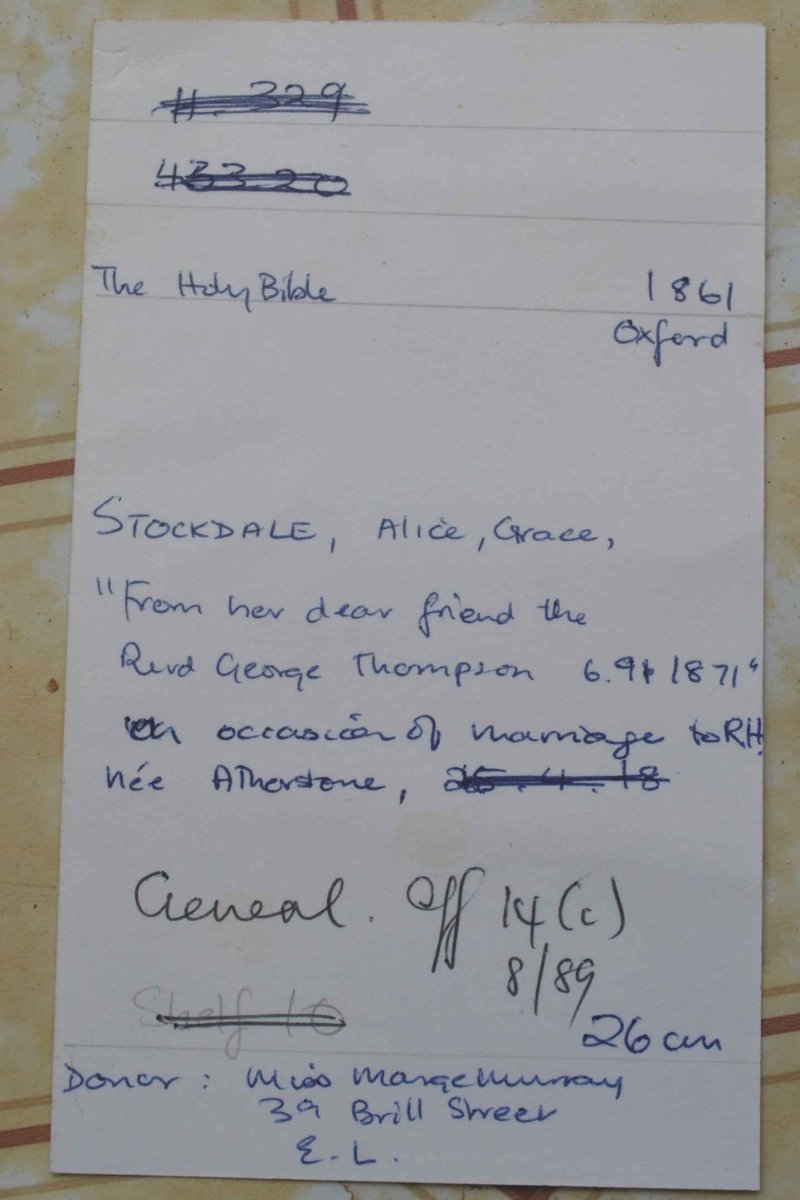 11. 329
433.20
The Holy Bible 1861
Oxford
STOCKDALE, Alice, Grace,
"From her dear friend the
Revd George Thompson 6. 1871"
on occasion of marriage to RH
née Atherstone, 25.4.18
Geneal. Off 14(c)
8/89
Shelf 10
26 cm
Donor: Miss Marge Murray
Brill Street
E.L.